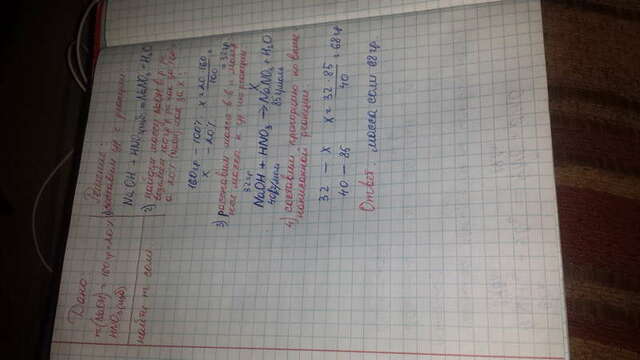 Дано:
m(NaOH) = 160гр - 20%
HNO3(изб)
найти m соли
Решение
составим ур. реакции
NaOH + HNO3(изб) = NaNO3 + H2O
2) найдем массу NaOH в р-ре
160гр - 100%
x - 20%
x = 20·160 / 100 = 32гр
3)
32гр x
NaOH + HNO3 → NaNO3 + H2O
40гр/моль 85г/моль
4) составим пропорцию по выше написанной реакции
32 — x
40 — 85
x = 32·85 / 40 = 68гр
Ответ: масса соли 68гр.